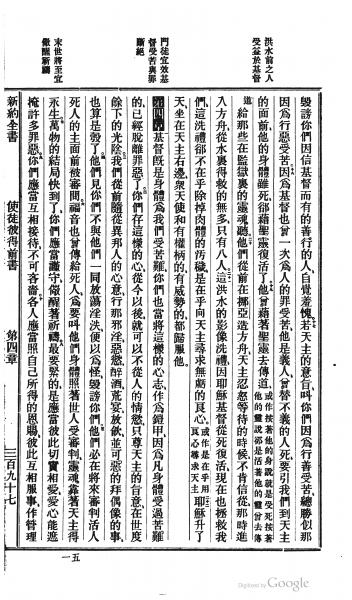 洪水前之人
受益於基督
門徒宜效基
督受苦與罪
斷絕
末世將至宜
儆醒祈禱
毀謗你們因信基督而有的善行的人自覺羞愧若天主的意旨叫你們因爲行善受苦總勝似那
因爲行惡受苦因爲基督也曾一次爲人的罪受苦他是義人曾替不義的人死要引我們到天主
的面前他的身體雖死卻藉聖靈復活了他曾藉著聖靈去傳道
給那些在監獄裏的靈魂聽他們從前在挪亞造方舟天主忍忍等待的時候不肯信從那時進
八方舟從水裏得救的無多只有八人這洪水的影像洗禮因耶穌基督從死復活現在也拯救我
們這洗禮卻不在乎除掉肉體的污穢是在乎向天主尋求無虧的良心
耶穌升了
天坐在天主右邊衆天使和有權柄的有威勢的都歸服他
第四章 基督旣是身體爲我們受苦難你們也當將這樣的心志作爲鎧甲因爲凡身體受過苦難
的已經脫離罪惡了你們存這樣的心從今以後就可以不從人的情慾只尊天主的旨意在世度
餘下的光陰我們從前隨從異邦人的心意行那邪淫惡慾醉酒荒宴放飲並可惡的拜偶像的事
也算是彀了他們見你們不與他們一同放蕩淫佚便以爲怪毀謗你們他們必在將來審判活人
死人的主面前被審問福音也曾傳給死人爲要叫他們身體照著世人受審判靈魂靠著天主得
永生萬物的結局快到了你們應當謹守儆醒著祈禱最要緊的是應當彼此切實相愛愛心能遮
掩許多罪惡你們應當互相接待不可吝嗇各人應當照自己所得的恩賜彼此互相服事作管理
新約全書
使徒彼得前書
第四章
三百九十七
五一
Digitized by Google